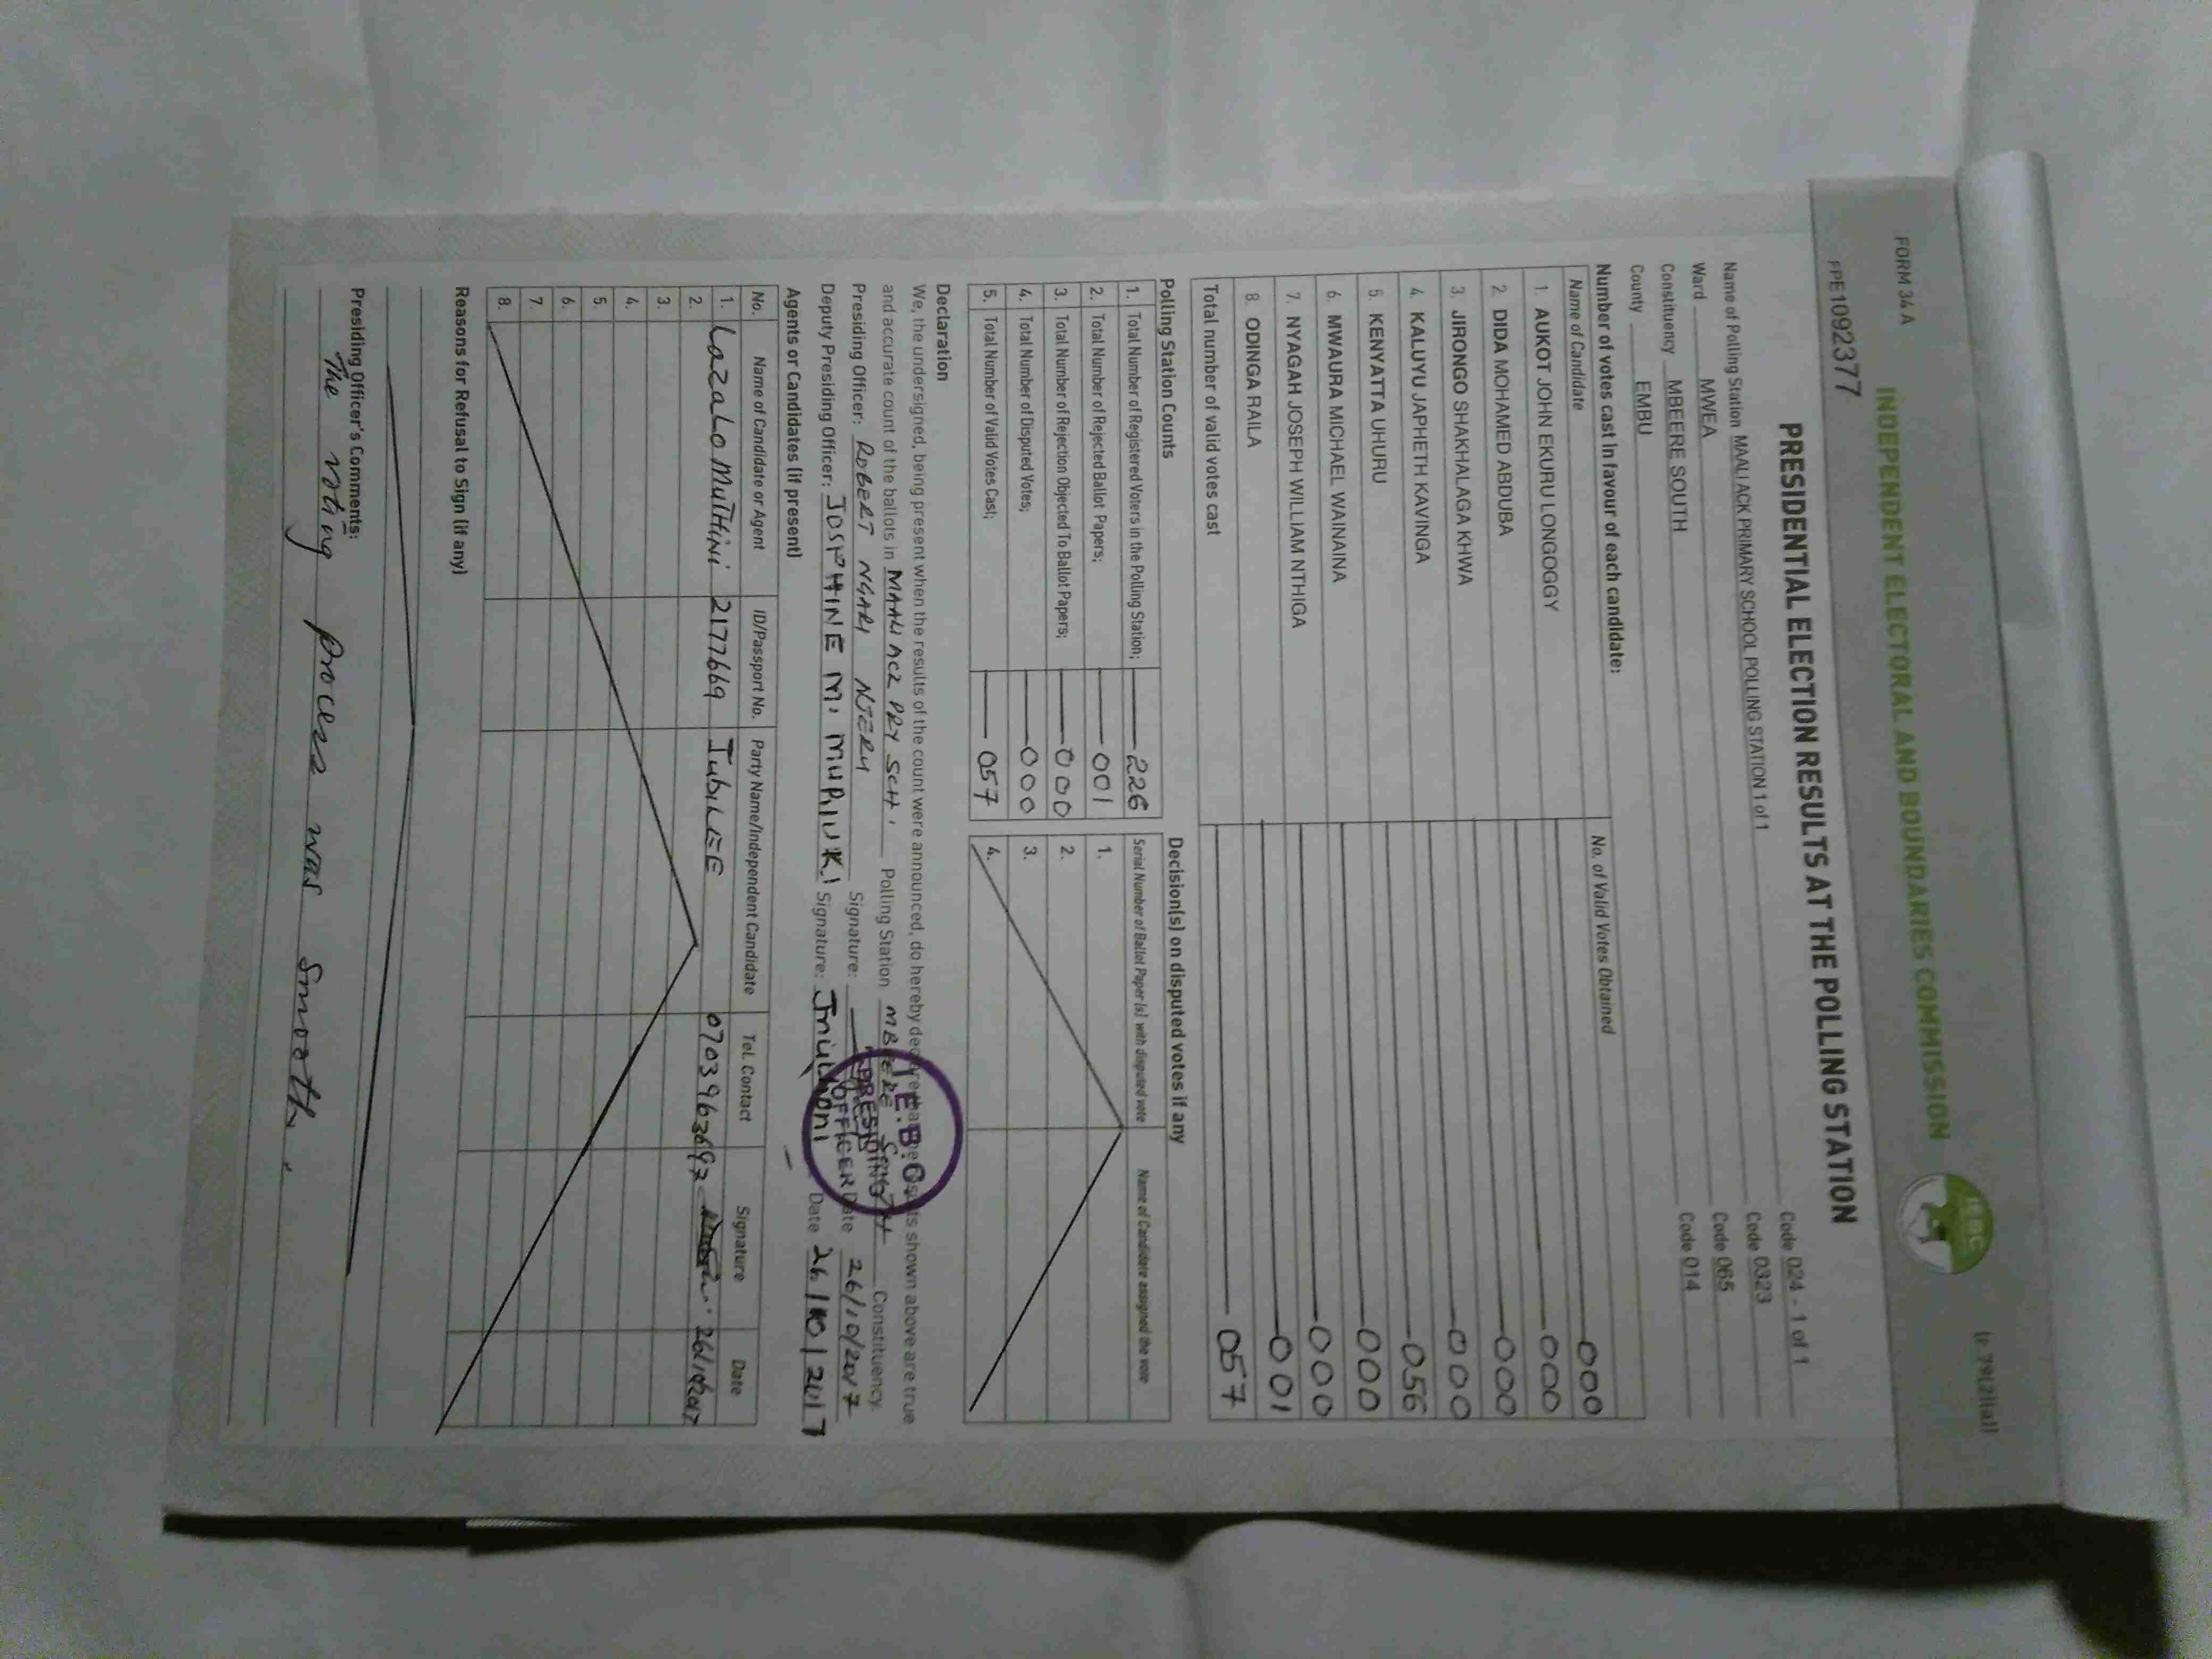 FORM 34A
(r.79(2)(a))
INDEPENDENT ELECTORAL AND BOUNDARIES COMMISSION
IEBC
FPE1092377
PRESIDENTIAL ELECTION RESULTS AT THE POLLING STATION
Name of Polling Station MAALI ACK PRIMARY SCHOOL POLLING STATION 1 of 1 Code 024 - 1 of 1
Ward MWEA Code 0323
Constituency MBEERE SOUTH Code 065
County EMBU Code 014
Number of votes cast in favour of each candidate:
Name of Candidate No. of Valid Votes Obtained
1. AUKOT JOHN EKURU LONGOGGY 000
2. DIDA MOHAMED ABDUBA 000
3. JIRONGO SHAKHALAGA KHWA 000
4. KALUYU JAPHETH KAVINGA 000
5. KENYATTA UHURU 056
6. MWAURA MICHAEL WAINAINA 000
7. NYAGAH JOSEPH WILLIAM NTHIGA 000
8. ODINGA RAILA 001
Total number of valid votes cast 057
Polling Station Counts
1. Total Number of Registered Voters in the Polling Station; 226
2. Total Number of Rejected Ballot Papers; 001
3. Total Number of Rejection Objected To Ballot Papers; 000
4. Total Number of Disputed Votes; 000
5. Total Number of Valid Votes Cast; 057
Decision(s) on disputed votes if any
Serial Number of Ballot Paper (s) with disputed vote Name of Candidate assigned the vote
1.
2.
3.
4.
Declaration
We, the undersigned, being present when the results of the count were announced, do hereby declare that the results shown above are true
and accurate count of the ballots in MAALI ACK PRY SCH. Polling Station MBEERE SOUTH Constituency.
Presiding Officer: ROBERT NGARI NJERU Signature: Date 26/10/2017
Deputy Presiding Officer: JOSPHINE M. MURIUKI Signature: Date 26/10/2017
I.E.B.C
PRESIDING
OFFICER
Agents or Candidates (if present)
No. Name of Candidate or Agent ID/Passport No. Party Name/Independent Candidate Tel. Contact Signature Date
1. Lazalo MUTHINI 2177669 JUBILEE 0703963697 26/10/2017
2.
3.
4.
5.
6.
7.
8.
Reasons for Refusal to Sign (if any)
Presiding Officer's Comments:
The voting process was smooth.